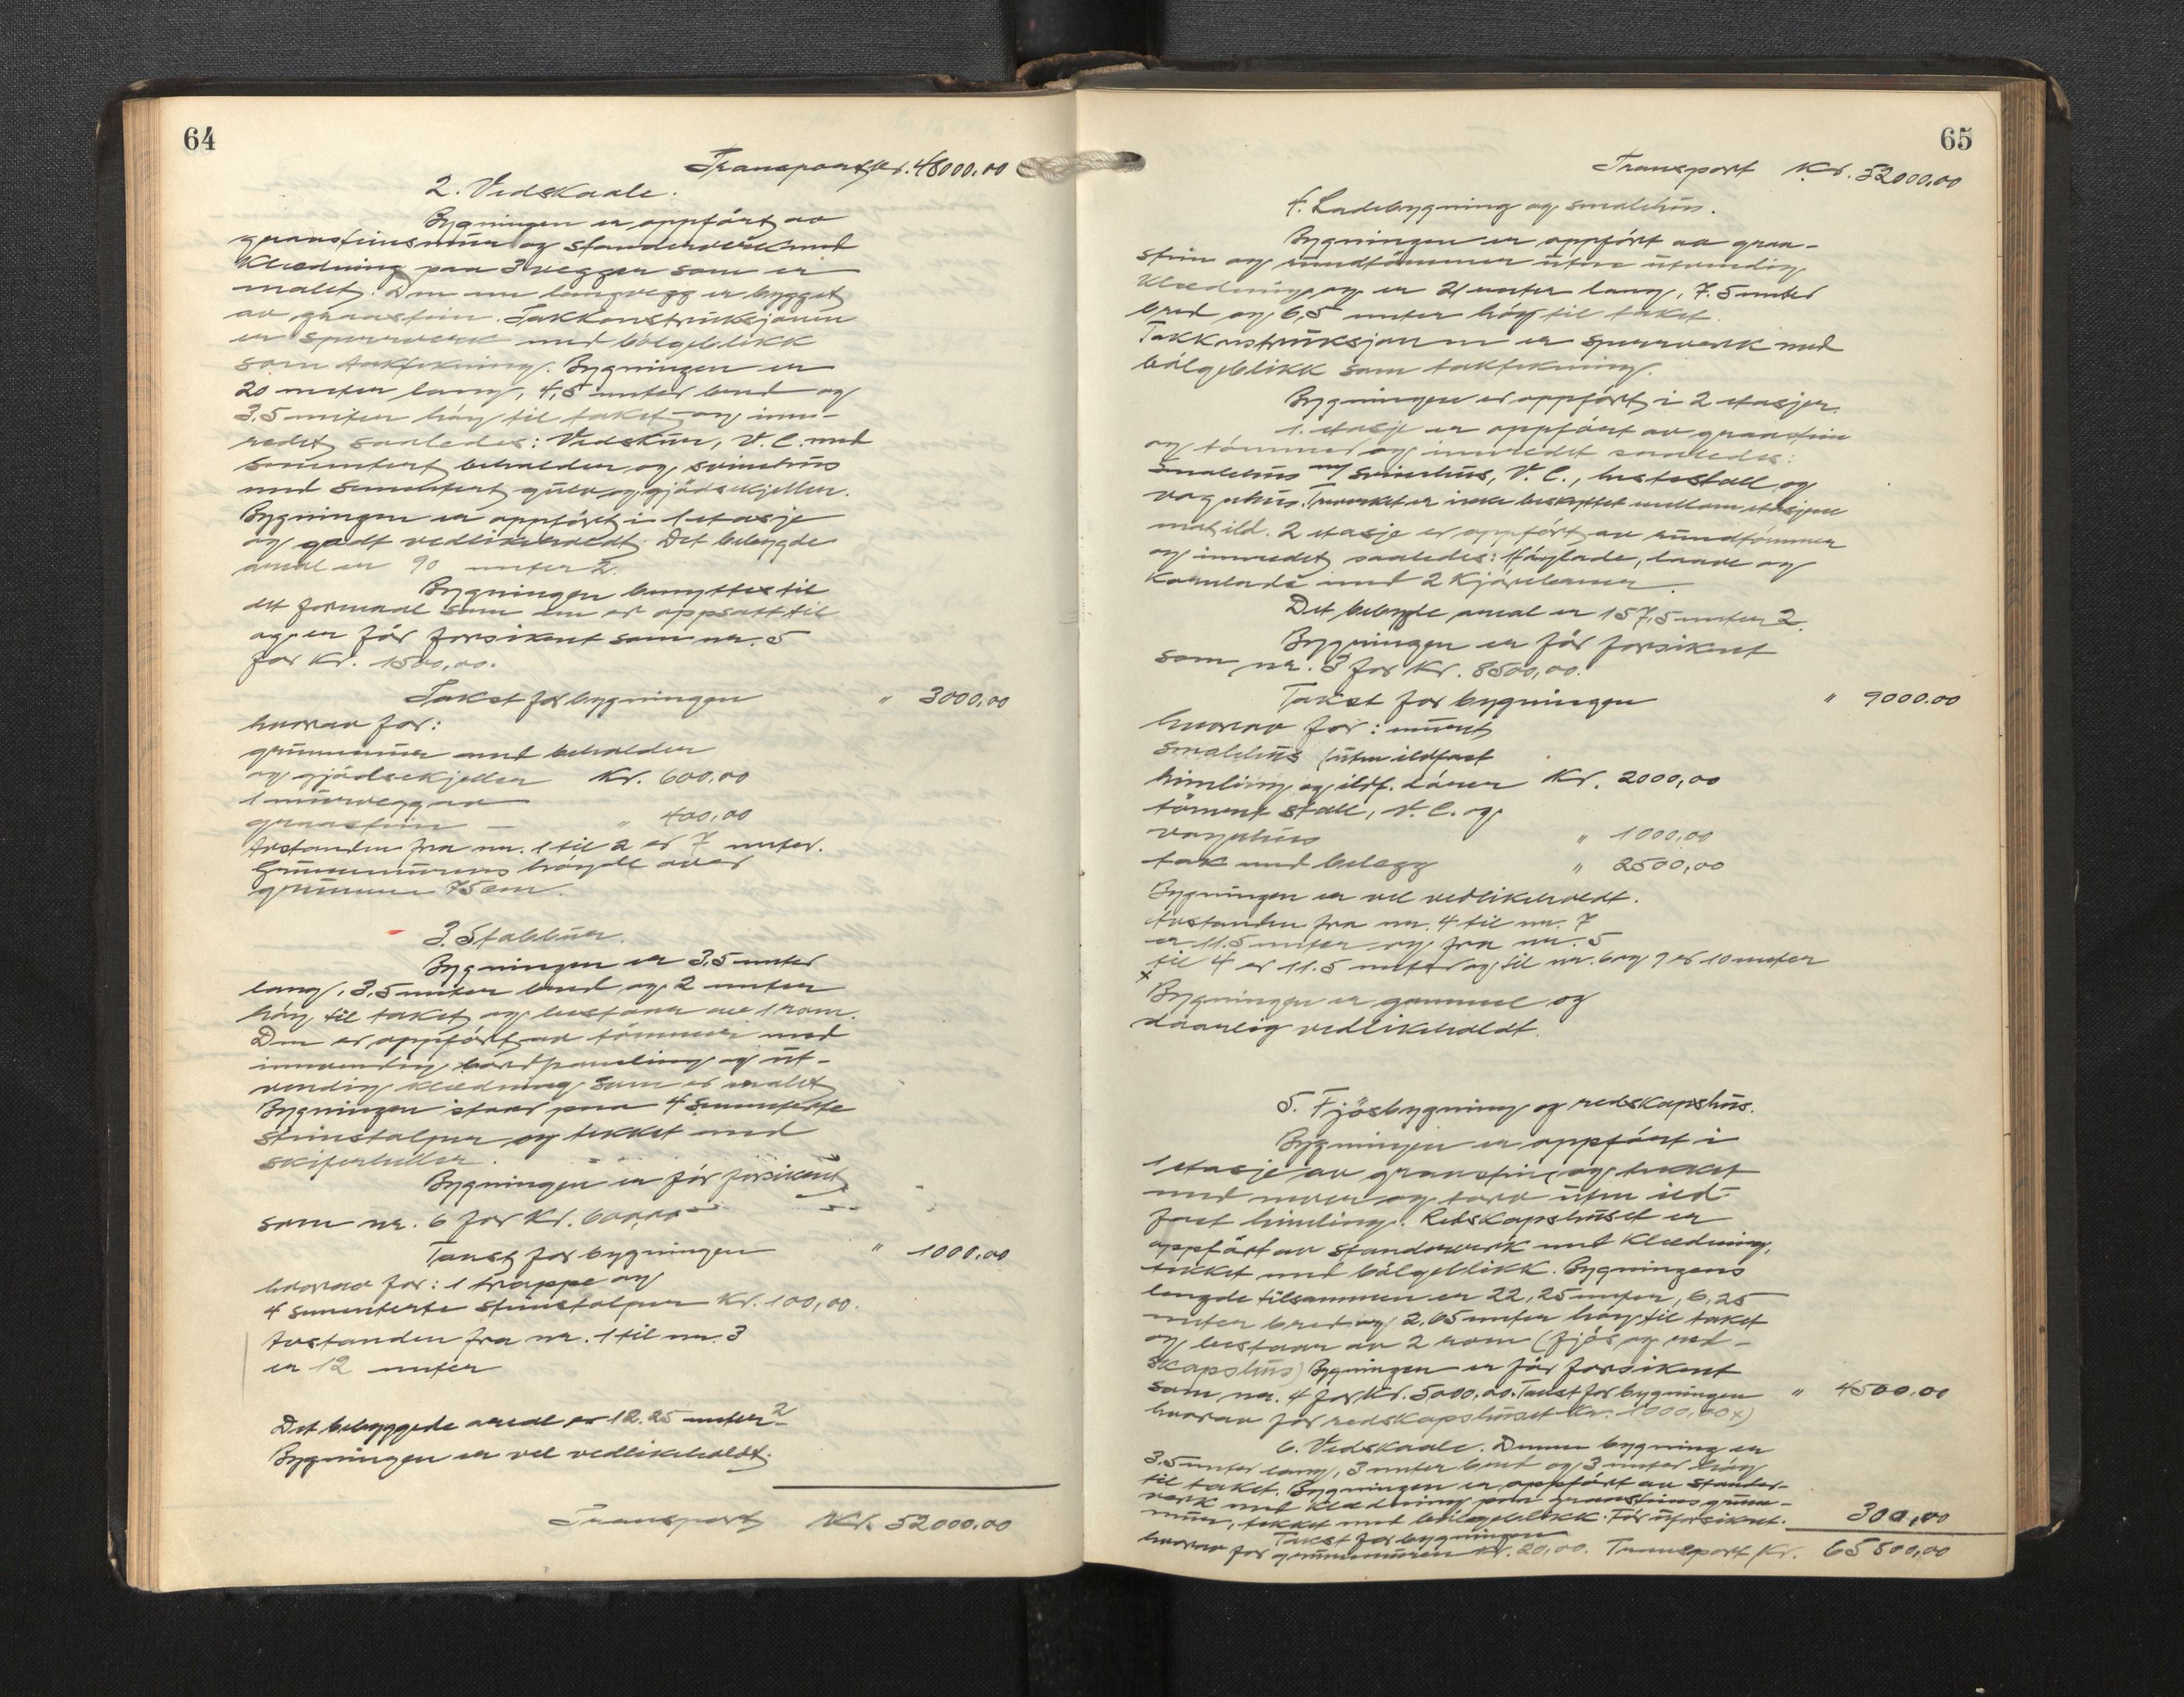 64
Transport Kr. 48000,00
2. Vedskaale.
Bygningen er oppført av
graasteinsmur og standerverk med
Klædning paa 3 vegger som er
malet. Den ene langvegg er bygget
av graastein. Takkonstruksjonen
er sperrverk med bølgeblikk
som taktekning. Bygningen er
20 meter lang, 4,5 meter bred og
3,5 meter høy til taket og inn-
redet saaledes: Vedskur, V.C. med
sementert beholder og svinehus
med sementert gulv og gjødselkjeller.
Bygningen er oppført i 1 etasje
og godt vedlikeholdt. Det bebygde
areal er 90 meter 2.
Bygningen benyttes til
det formaal som den er oppsatt til
og er før forsikret som nr. 5
for Kr. 1500,00.
Takst for bygningen " 3000,00
hvorav for:
grunnmur med beholder
og gjødselkjeller Kr. 600,00
1 murvegg av
graastein — " 400,00
Avstanden fra nr. 1 til 2 er 7 meter.
Grunnmurens høyde over
grunnen 75 cm
3. Stabbur.
Bygningen er 3,5 meter
lang, 3,5 meter bred og 2 meter
høy til taket og bestaar av 1 rom.
Den er oppført av tømmer med
innvendig bordpaneling og ut-
vendig klædning som er malet
Bygningen staar paa 4 sementerte
steinstolper og tekket med
skiferheller.
Bygningen er før forsikret
som nr. 6 for Kr. 600,00
Takst for bygningen " 1000,00
hvorav for: 1 trappe og
4 sementerte steinstolper Kr. 100,00.
Avstanden fra nr. 1 til nr. 3
er 12 meter
Det bebyggede areal er 12.25 meter 2
Bygningen er vel vedlikeholdt.
Transport Kr. 52000,00
65
Transport Kr. 52000,00
4. Ladebygning og smalehus.
Bygningen er oppført av graa-
stein og rundtømmer uten utvendig
Klædning og er 21 meter lang, 7.5 meter
bred og 6,5 meter høy til taket.
Takkonstruksjonen er sperrverk med
bølgeblikk som taktekning.
Bygningen er oppført i 2 etasjer.
1. etasje er oppført av graastein
og tømmer og innredet saaledes:
Smalehus og svinehus, V.C., hestestall og
vognhus. Treverket er ikke beskyttet mellom etasjene
mot ild. 2 etasje er oppført av rundtømmer
og innredet saaledes: Høylade, laave og
Kornlade med 2 Kjørebruer.
Det bebygde areal er 157,5 meter 2.
Bygningen er før forsikret
som nr. 3 for Kr. 8500,00.
Takst for bygningen " 9000.00
hvorav for: muret
smalehus (uten ildfast
himling og ildf. dører Kr. 2000,00
tømret stall, V.C. og
vognhus " 1000,00
tak med belegg " 2500,00
Bygningen er vel vedlikeholdt.
Avstanden fra nr. 4 til nr. 7
er 11.5 meter og fra nr. 5
til 4 er 11.5 meter og til nr. 6 og 7 er 10 meter
x
Bygningen er gammel og
daarlig vedlikeholdt.
5. Fjøsbygning og redskapshus.
Bygningen er oppført i
1 etasje av graastein og tekket
med never og torv uten ild-
fast himling. Redskapshuset er
oppført av standerverk med Klædning,
tekket med bølgeblikk. Bygningens
lengde tilsammen er 22,25 meter, 6,25
meter bred og 2,65 meter høy til taket
og bestaar av 2 rom (fjøs og red-
skapshus) Bygningen er før forsikret
som nr. 4 for Kr. 5000,00. Takst for bygningen " 4500,00
hvorav for redskapshuset Kr. 1000,00 x)
6. Vedskaale. Denne bygning er
3.5 meter lang, 3 meter bred og 3 meter høy
til taket. Bygningen er oppført av stander-
verk med klædning paa graasteinsgrunn-
mur, tekket med bølgeblikk. Før uforsikret.
Takst for bygningen 300,00
hvorav for grunnmuren Kr. 20,00. Transport Kr. 65800,00